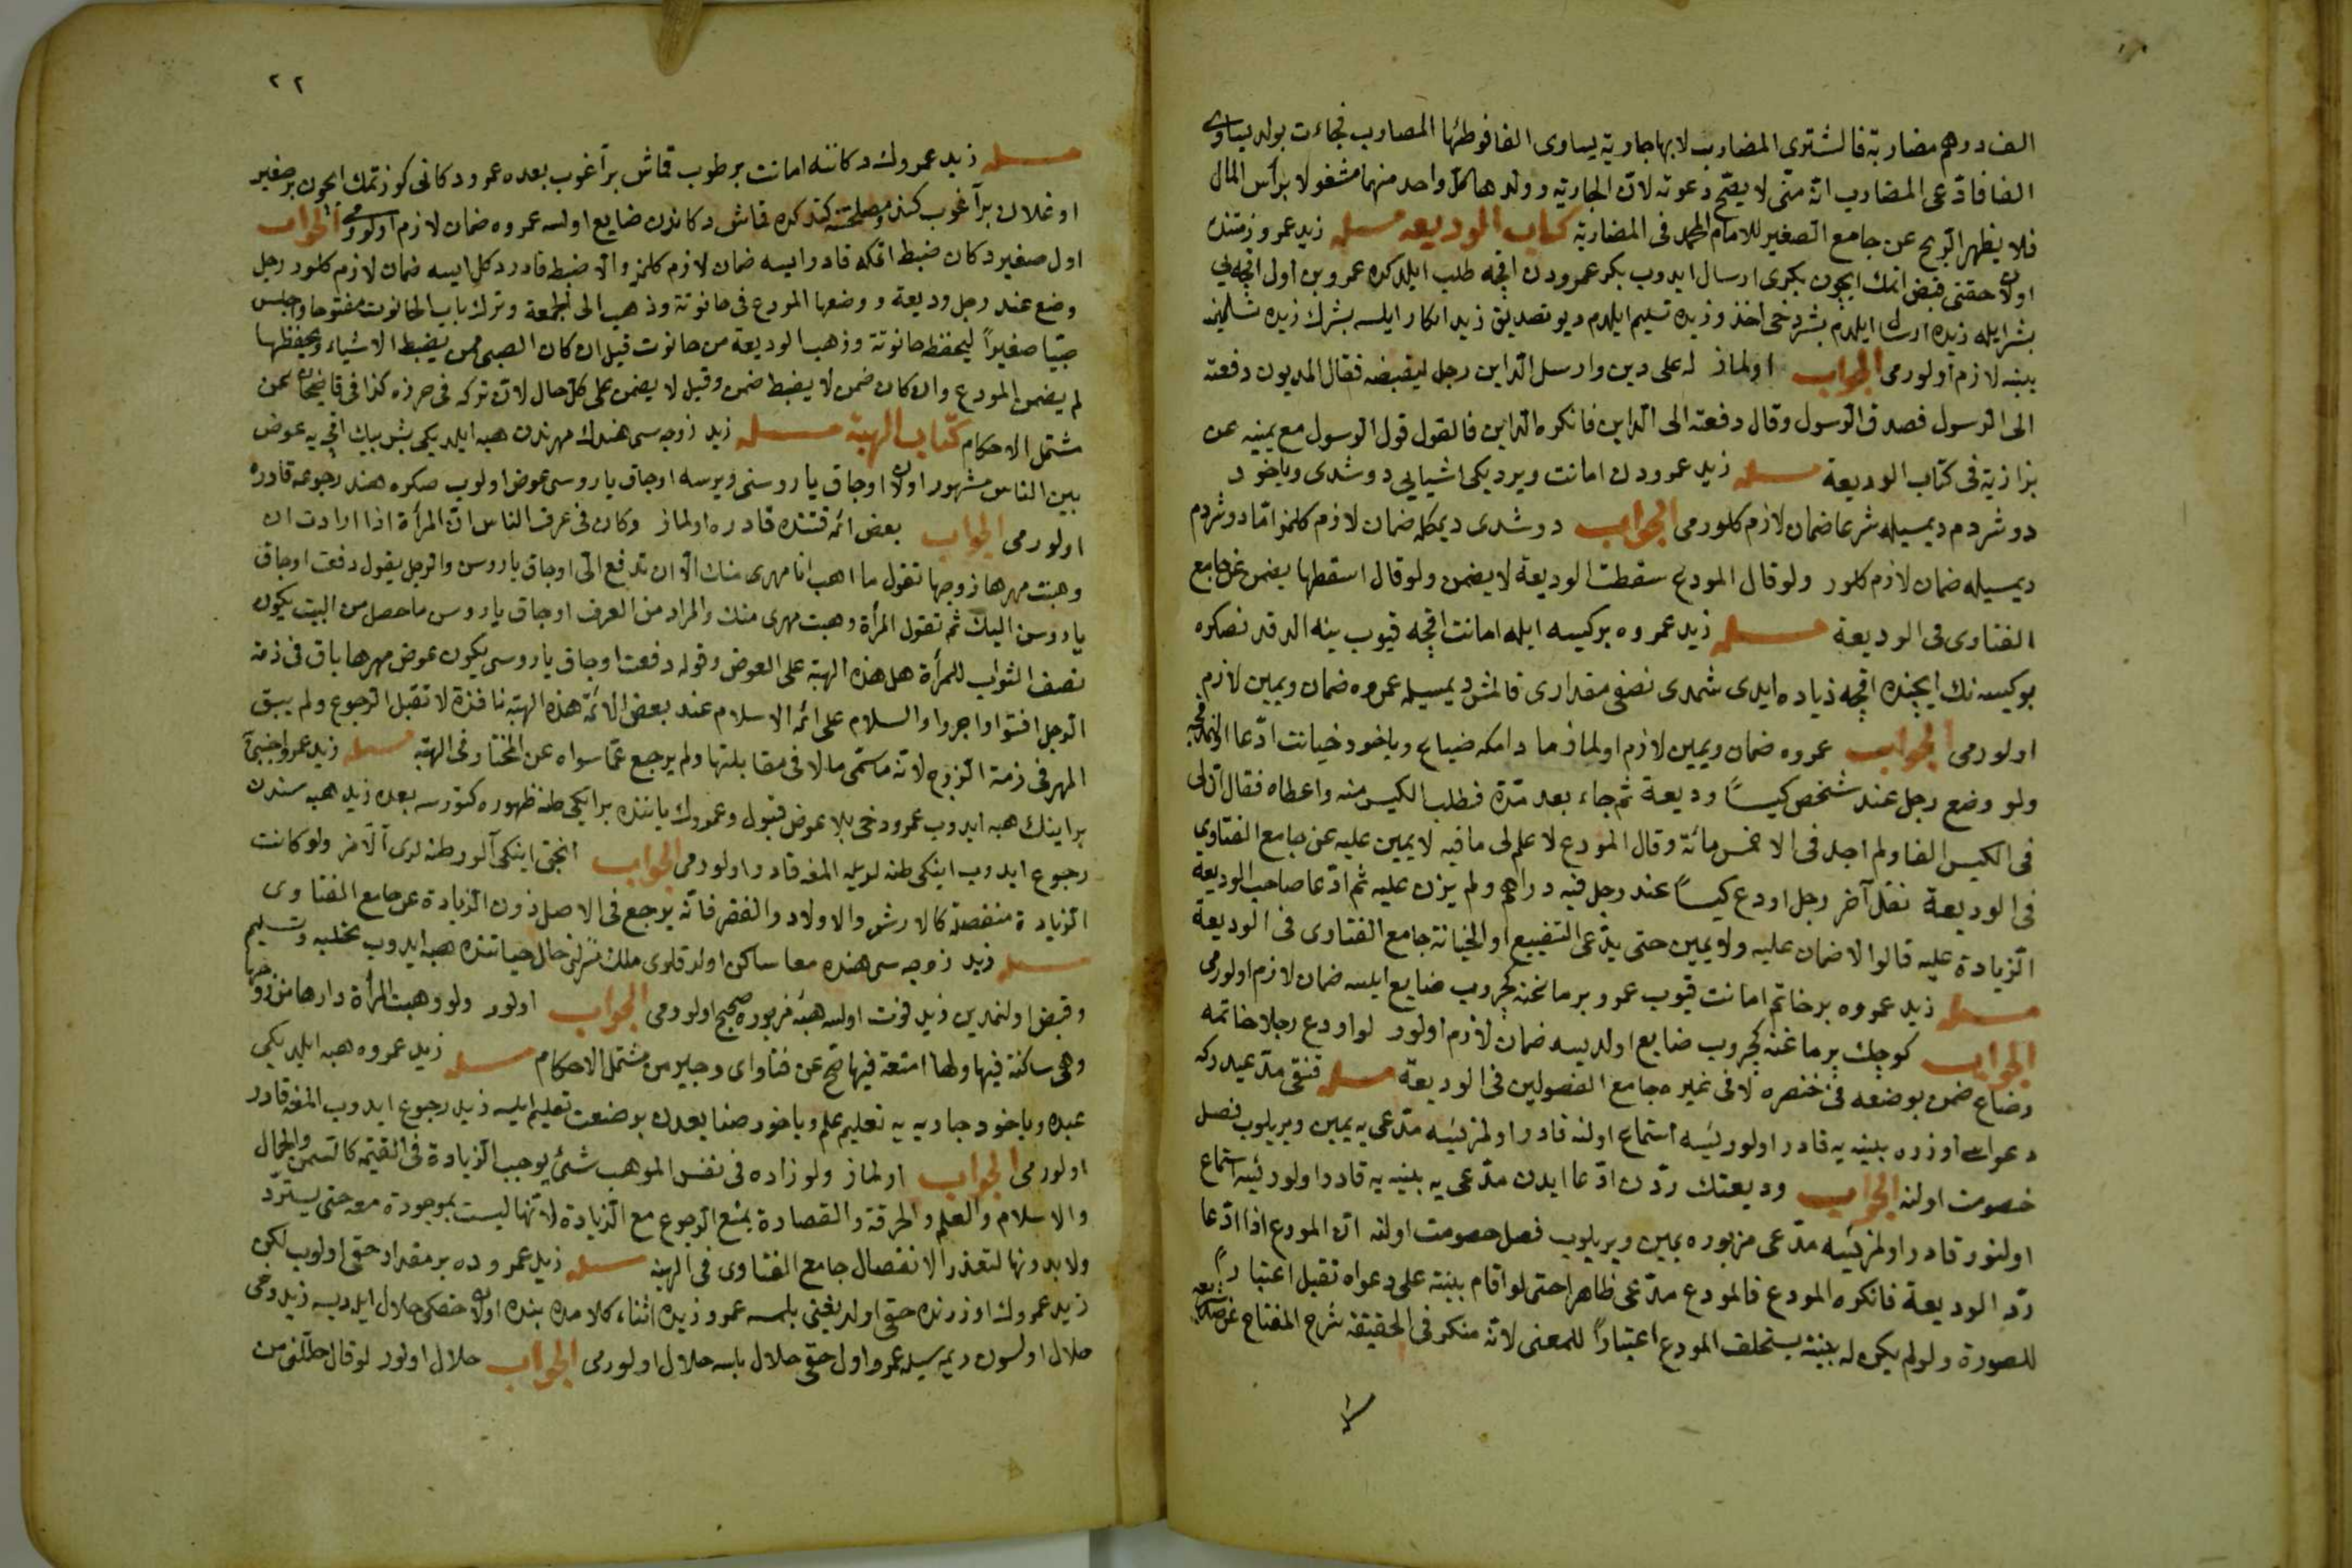 الف درهم مضاربة فالشترى المضارب لابها جارية يساوى الفا فوطئها المصارب فجاءت بولد يساوى
الفا فادّعى المضارب انّه منّى لا يصّح دعوته لانّ الجاريه وولدها كلّ واحد منهما مشغولا برأس المال
فلا يظهر الرّبح عن جامع الصغير للامام المحمد فى المضاربة كتاب الوديعه مسئله زيد عمرو زمتنده
اولان حقنى قبض اتمك ايچون بكرى ارسال ايدوب بكر عمرودن اقچه طلب ايلدكده عمرو بن اول اقچه يى
بشرايله زيده ارسال ايلدم بشر دخى اخذ و زيده تسليم ايلدم ديو تصديق زيد انكار ايلسه بشرك زيده تسليمنه
بينه لازم اولورمى الجواب اولماز له على دين وارسل الداين رجل ليقبضه فقال المديون دفعته
الى الرسول فصدق الرسول وقال دفعته الى الداين فانكره الداين فالقول قول الرسول مع يمينه عن
بزازية فى كتاب الوديعة مسئله زيد عمرودن امانت ويرديكى اشيايى دوشدى وياخود
دوشردم ديمسيله شرعا ضمان لازم كلورمى الجواب دوشدى ديمكله ضمان لازم كلمز امّا دوشردم
ديمسيله ضمان لازم كلور ولو قال المودع سقطت الوديعة لا يضمن ولو قال اسقطها يضمن عن جامع
الفتاوى فى الوديعة مسئله زيد عمروه بر كيسه ايله امانت اقچه قيوب ينه الدقدنصكره
بو كيسه نك ايچنده اقچه زياده ايدى شمدى نصفى مقدارى قالمش ديمسيله عمروه ضمان ويمين لازم
اولورمى الجواب عمروه ضمان ويمين لازم اولماز مادامكه ضياع وياخود خيانت ادّعا اولنمدقجه
ولو وضع رجل عند شخص كيسًا وديعة ثم جاء بعد مدّة فطلب الكيس منه واعطاه فقال انّ لى
فى الكيس الفا ولم اجد فى الا خمس مائة وقال المودع لا علم لى ما فيه لا يمين عليه عن جامع الفتاوى
فى الوديعة نقل آخر رجل اودع كيسًا عند رجل فيه دراهم ولم يزن عليه ثم ادّعا صاحب الوديعة
الزيادة عليه قالوا لا ضمان عليه ولا يمين حتى يدّعى التضييع او الخيانة جامع الفتاوى فى الوديعة
مسئله زيد عمروه بر خاتم امانت قيوب عمرو برماغنه كچروب ضايع ايلسه ضمان لازم اولورمى
الجواب كوچك برماغنه كچروب ضايع اولديسه ضمان لازم اولور لو اودع رجلا خاتمه
وضاع ضمن بوضعه فى خنصره لا فى غيره جامع الفصولين فى الوديعة مسئله قنقى مدّعيدركه
دعواسى اوزره بينه يه قادر اولوريسه استماع اولنه قادر اولمزيسه مدّعى يه يمين ويريلوب فصل
خصومت اولنه الجواب وديعتك ردّن ادّعا ايدن مدّعى يه بينه يه قادر اولوريسه استماع
اولنور قادر اولمزيسه مدّعى مزبوره يمين ويريلوب فصل حصومت اولنه انّ المودع اذا ادّعا
ردّ الوديعة فانكره المودع فالمودع مدّعى ظاهرا حتى لو اقام بينة على دعواه تقبل اعتبارًا
للصورة ولو لم يكن له بينة يستحلف المودع اعتبارًا للمعنى لانّه منكر فى الحقيقة شرح المفتاح
٢٢
مسئله زيد عمروك دكاننه امانت بر طوب قماش براغوب بعده عمرو دكانى كوزتمك ايچون بر صغير
اوغلان براغوب كندو مصلحتنه كتدكده قماش دكاندن ضايع اولسه عمروه ضمان لازم اولورمى الجواب
اول صغير دكان ضبط اتمكه قادر ايسه ضمان لازم كلمز والا ضبط قادر دكل ايسه ضمان لازم كلور رجل
وضع عند رجل وديعة ووضعها المودع فى حانوتة وذهب الى الجمعة وترك باب الحانوت مفتوحا واجلس
صبيّا صغيرًا ليحفظ حانوتة وذهب الوديعة من حانوت قيل ان كان الصبى ممن يضبط الاشياء ويحفظها
لم يضمن المودع وان كان ضمن لا يضبط ضمن وقيل لا يضمن على كل حال لانّه تركه فى حرزه كذا فى قاضيخان عن
مشتمل الاحكام كتاب الهبة مسئله زيد زوجه سى هندك مهرندن هبه ايلديكى بش بيك اقچه يه عوض
بين الناس مشهور اولان اوجاق ياروسنى ويرسه اوجاق ياروسى عوض اولوب صكره هند رجوعه قادره
اولورمى الجواب بعض ائمه قتنده قادره اولماز وكان فى عرف الناس انّ المرأة اذا ارادت ان
وهبت مهرها زوجها تقول ما اهب انا مهرى منك الّا ان تدفع الىّ اوجاق ياروسن والرجل يقول دفعت اوجاق
ياروسن اليك ثم تقول المرأة وهبت مهرى منك والمراد من العرف اوجاق ياروس ما حصل من البيت يكون
نصف الثواب للمرأة هل هذه الهبة على العوض وقوله دفعت اوجاق ياروسى يكون عوض مهرها باق فى ذمة
الرجل افتوا واجروا والسلام على ائمه الاسلام عند بعض الائمّة هذه الهبة نافذة لا تقبل الرجوع ولم يبق
المهر فى ذمة الزوج لانّه ما سمّى مالا فى مقابلتها ولم يرجع عمّا سواه عن المختار فى الهبة مسئله زيد عمرو اجنبى
بر اينك هبه ايدوب عمرو دخى بلا عوض قبول وعمروك ياننده بر ايكى طنه ظهوره كتورسه بعده زيد هبه سندن
رجوع ايدوب اينكى طنه لريله المغه قادر اولورمى الجواب انجق اينكى آلور طنه لرى آلامز ولو كانت
الزيادة منفصلة كالارش والاولاد والفقر فانّه يرجع فى الاصل دون الزيادة عن جامع الفتاوى
مسئله زيد زوجه سى هنده معا ساكن اولدقلرى ملك منزلنى حال حياتنده هبه ايدوب تخليه وتسليم
وقبض اولنمدين زيد فوت اولسه هبهٔ مزبوره صحيح اولورمى الجواب اولور ولو وهبت المرأة دارها من زوجها
وهى ساكنة فيها ولها امتعة فيها صّح عن فتاواى وجيز من مشتمل الاحكام مسئله زيد عمروه هبه ايلديكى
عبده وياخود جاريه يه تعليم علم وياخود صنايعدن بر صنعت تعليم ايلسه زيد رجوع ايدوب المغه قادر
اولورمى الجواب اولماز ولو زاده فى نفس الموهب شئ يوجب الزيادة فى القيمه كالسمن والجمال
والاسلام والعلم والحرفة والقصارة يمنع الرجوع مع الزيادة لانّها ليست بموجودة معه حتى يسترّد
ولا بدونها لتعذر الانفصال جامع الفتاوى فى الهبة مسئله زيد عمروده بر مقدار حقى اولوب لكن
زيد عمروك اوزرنده حقى اولديغنى بلمسه عمرو زيده اثناء كلامده بنده اولان حقكى حلال ايله ديسه زيد دخى
حلال اولسون ديمسيله عمرو اول حقى حلال بلسه حلال اولورمى الجواب حلال اولور لو قال حلّلنى من